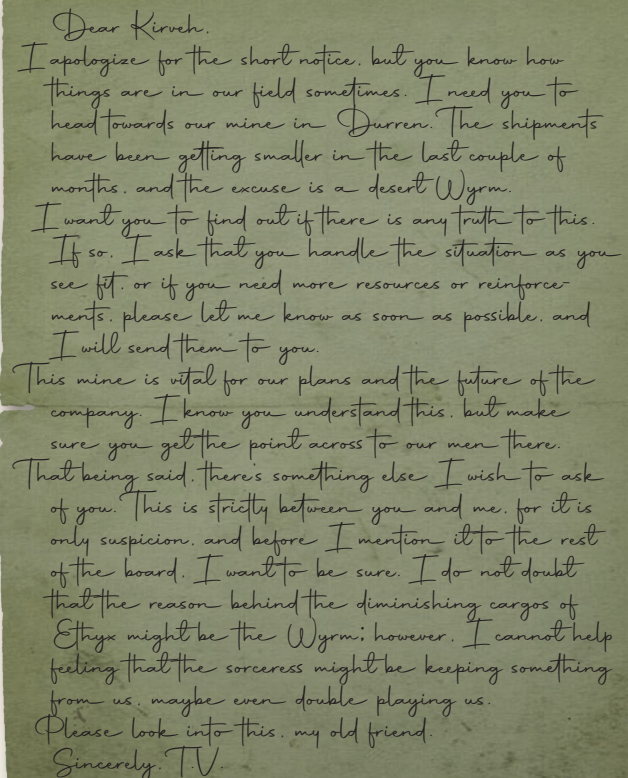 Dear Kirveh,
I apologize for the short notice, but you know how
things are in our field sometimes. I need you to
head towards our mine in Durren. The shipments
have been getting smaller in the last couple of
months, and the excuse is a desert Wyrm.
I want you to find out if there is any truth to this.
If so, I ask that you handle the situation as you
see fit, or if you need more resources or reinforce-
ments, please let me know as soon as possible, and
I will send them to you.
This mine is vital for our plans and the future of the
company. I know you understand this, but make
sure you get the point across to our men there.
That being said, there's something else I wish to ask
of you. This is strictly between you and me, for it is
only suspicion, and before I mention it to the rest
of the board, I want to be sure. I do not doubt
that the reason behind the diminishing cargos of
Ethyx might be the Wyrm; however, I cannot help
feeling that the sorceress might be keeping something
from us, maybe even double playing us.
Please look into this, my old friend.
Sincerely, T.V.